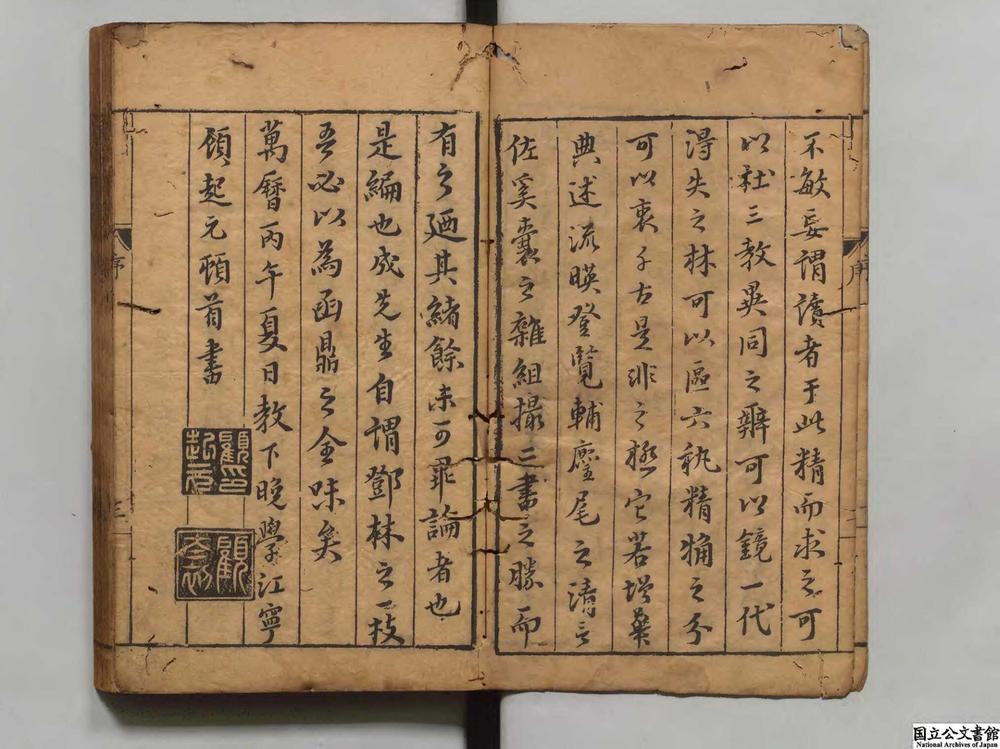 不敏妄謂讀者于此精而求之可
以祛三教異同之辨可以鏡一代
得失之林可以區六秇精觕之分
可以衷千古是非之極它若增華
典述流暎登覽輔麈尾之清言
佐奚囊之雜組撮三書之勝而
有之廼其緒餘未可畢論者也
是編也成先生自謂鄧林之一枝
吾必以為函鼎之全味矣
萬曆丙午夏日教下晚學江寧
顧起元頓首書
顧印起元
顧太初
序
三
序
国立公文書館
National Archives of Japan